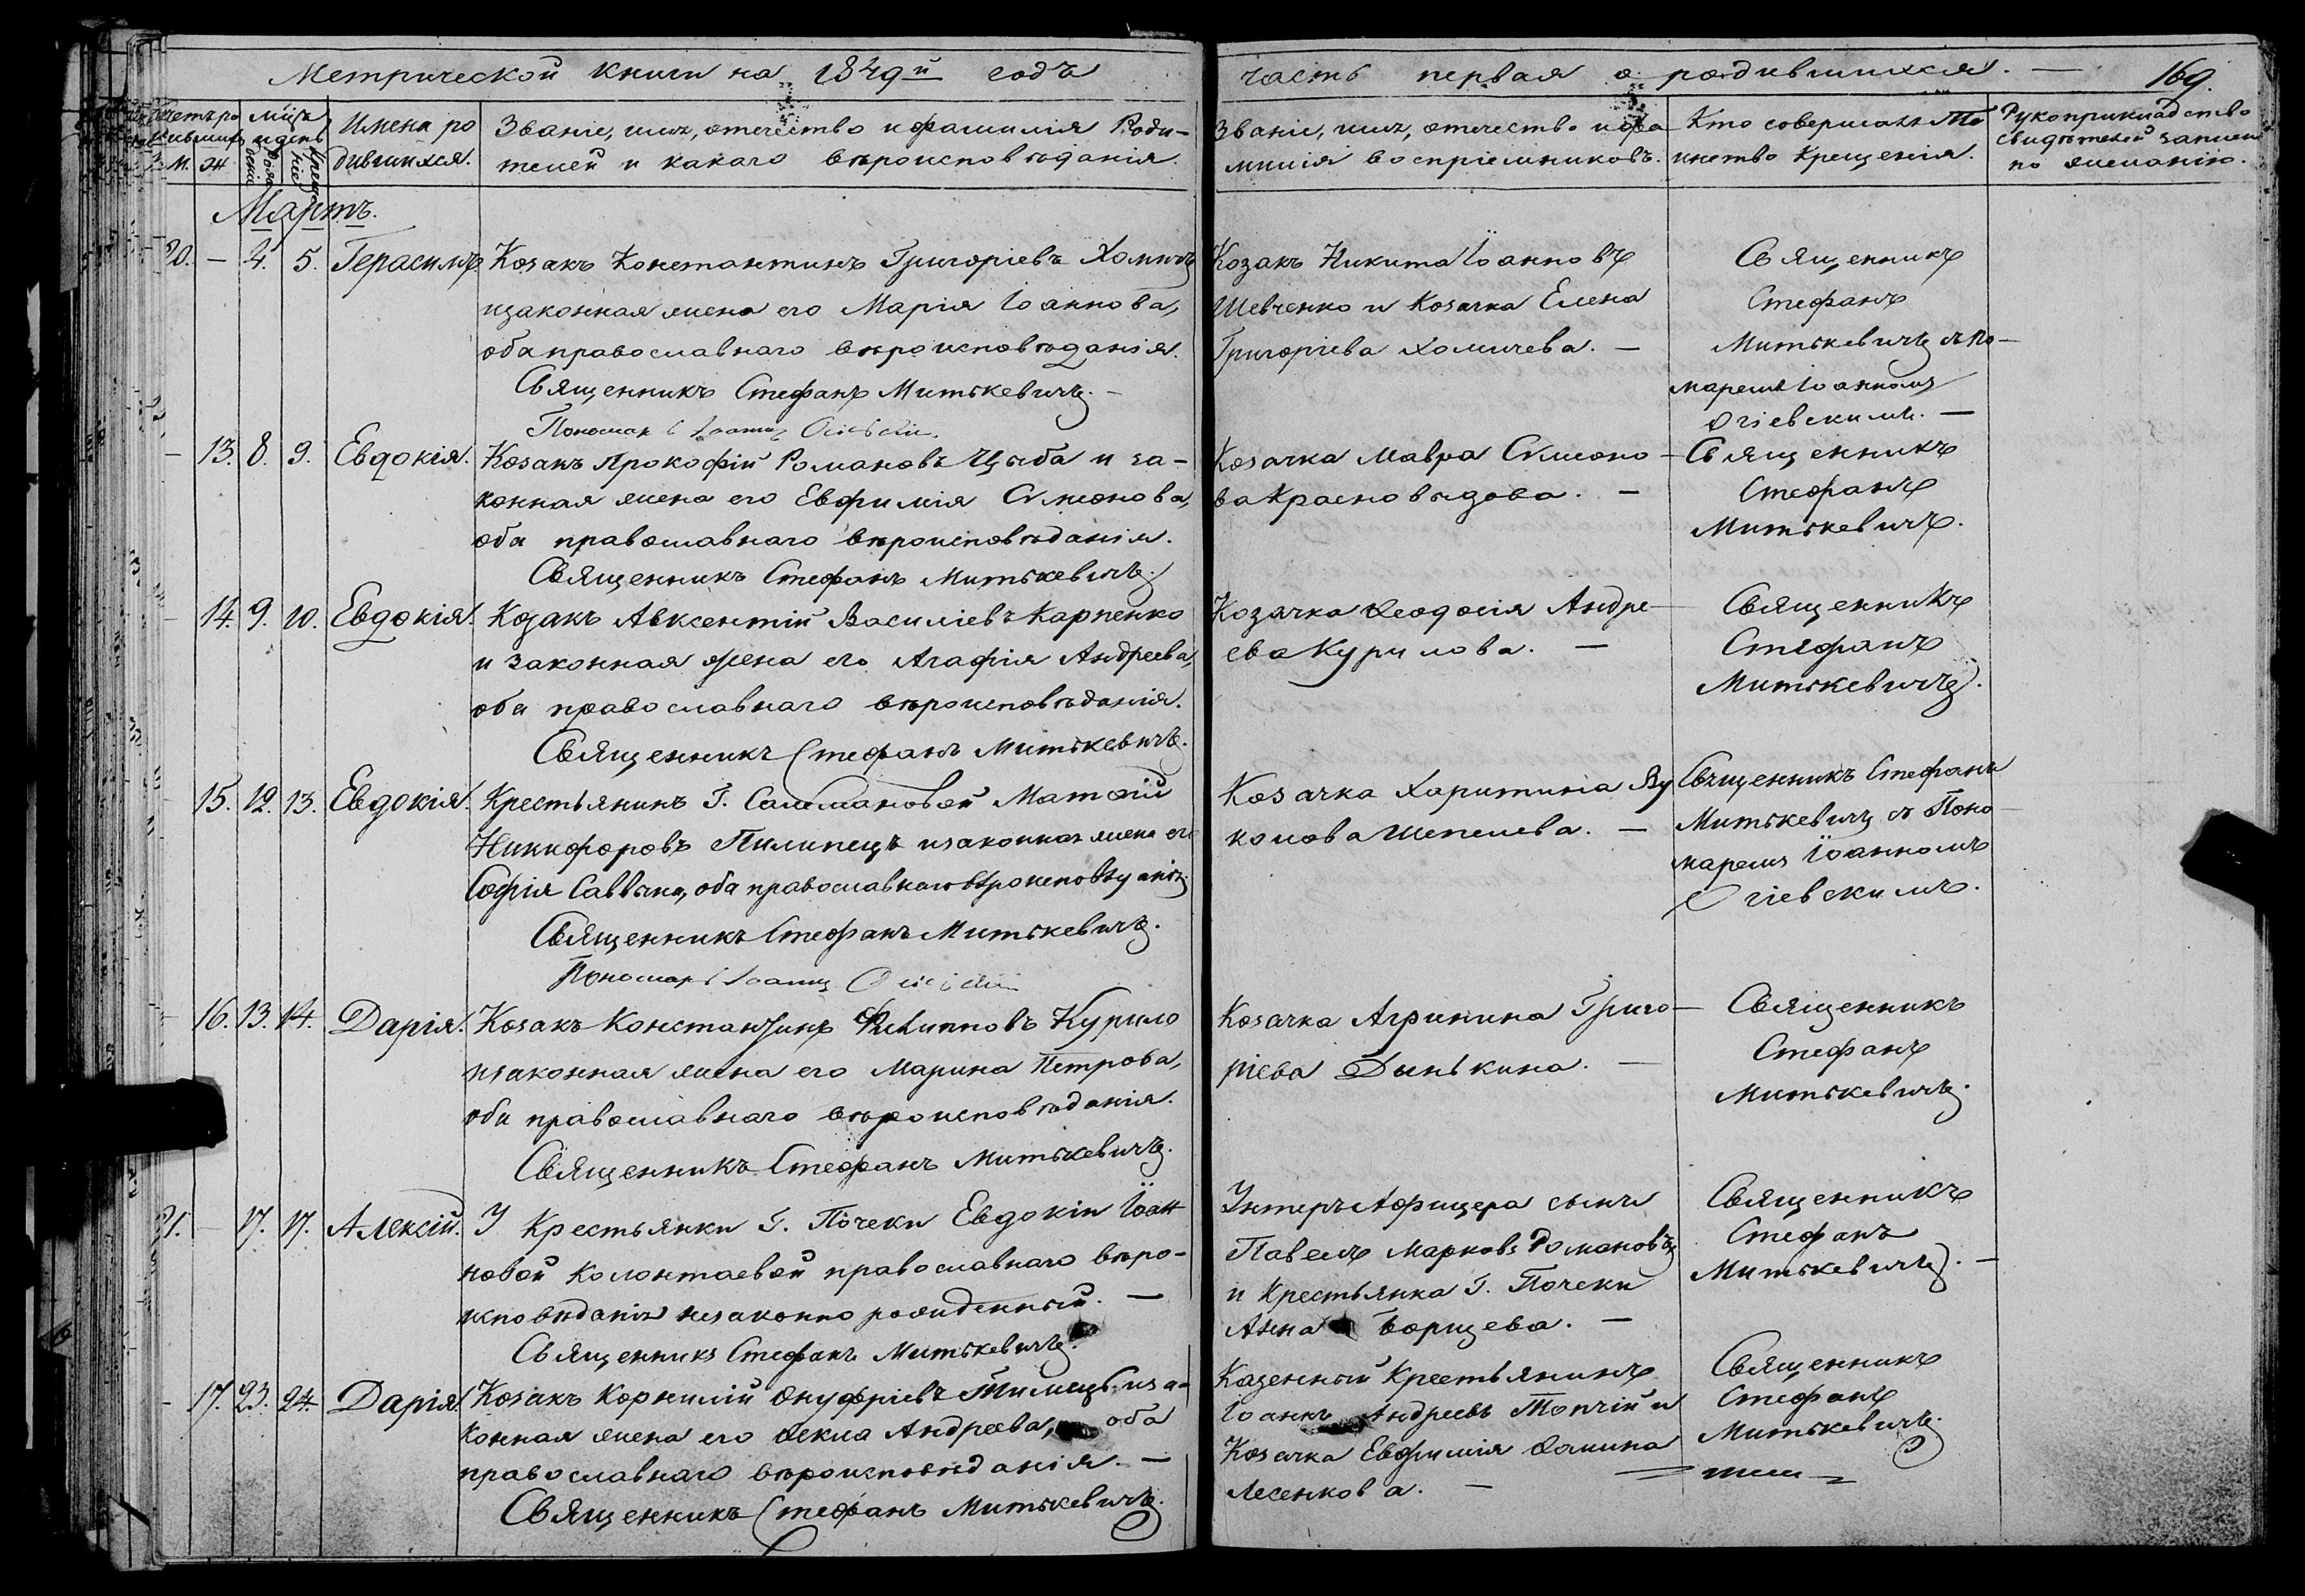 Метрической книги на 1849й годъ
часть первая о родившихся. — 169.
Имена родившихся.
Званіе, имя, отечество и фамилія Роди-
телей и какаго вѣроисповѣданія.
Званіе, имя, отечество и фа-
милія воспріемниковъ.
Кто совершалъ Та-
инство Крещенія.
Рукоприкладство
свидѣтелей записи
по желанію.
Мартъ.
20. — 4. 5. Герасимъ
Козакъ Константинъ Григоріевъ Хомичъ
изаконная жена его Марія Іоаннова,
оба православнаго вѣроисповѣданія.
Священникъ Стефанъ Митькевичъ. —
Пономарь Іоаннъ
Козакъ Никита Іоанновъ
Шевченко и Козачка Елена
Григоріева Хомичева. —
Священникъ
Стефанъ
Митькевичъ съ По-
маремъ Іоанномъ
Огіевскимъ. —
— 13. 8. 9. Евдокія.
Козакъ Прокофій Романовъ Цыба и за-
конная жена его Евфимія Симонова,
оба православнаго вѣроисповѣданія.
Священникъ Стефанъ Митькевичъ.
Козачка Мавра Симоно-
ва Красновыдова. —
Священникъ
Стефанъ
Митькевичъ.
— 14. 9. 10. Евдокія.
Козакъ Авксентій Василіевъ Карпенко
и законная жена его Агафія Андреева,
оба православнаго вѣроисповѣданія.
Священникъ Стефанъ Митькевичъ.
Козачка Ѳеодосія Андре-
ева Курилова. —
Священникъ
Стефанъ
Митькевичъ.
15. 12. 13. Евдокія.
Крестьянинъ Г. Матѳій
Никифоровъ Пилипецъ изаконная жена его
Софія Саввина, оба православнаго вѣроисповѣданія.
Священникъ Стефанъ Митькевичъ.
Пономарь Іоаннъ
Козачка Харитина Ву
колова Шепелева. —
Священникъ Стефанъ
Митькевичъ съ Поно-
маремъ Іоанномъ
Огіевскимъ.
— 16. 13. 14. Дарія.
Козакъ Константинъ Филипповъ Курило
изаконная жена его Марина Петрова,
оба православнаго вѣроисповѣданія.
Священникъ Стефанъ Митькевичъ.
Козачка Агрипина Григо-
ріева Дынькина. —
Священникъ
Стефанъ
Митькевичъ.
21. — 17. 17. Алексій.
У Крестьянки Г. Почеки Евдокіи Іоан
новой Колонтаевой православнаго вѣро-
исповѣданія незаконно рожденный. —
Священникъ Стефанъ Митькевичъ.
Унтеръ Афицера сынъ
Павелъ Марковъ Романовъ
и Крестьянка Г. Почеки
Анна Борщева. —
Священникъ
Стефанъ
Митькевичъ. —
— 17. 23. 24. Дарія.
Козакъ Корнилій Онуфріевъ иза-
конная жена его Ѳекла Андреева, оба
православнаго вѣроисповѣданія. —
Священникъ Стефанъ Митькевичъ.
Казенный Крестьянинъ
Іоаннъ Андреевъ Топчій и
Козачка Евфимія Ѳомина
Лесенкова. —
Священникъ
Стефанъ
Митькевичъ.